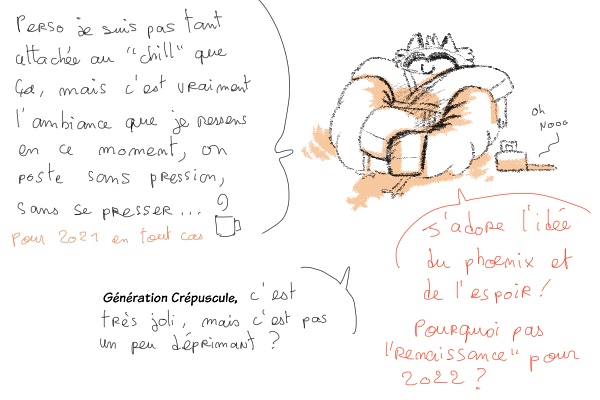 Perso je suis pas tant
attachée au "chill" que
ça, mais c'est vraiment
l'ambiance que je ressens
en ce moment, on
poste sans pression,
sans se presser...
pour 2021 en tout cas
oh
Nooo
J'adore l'idée
du phoenix et
de l'espoir !
Pourquoi pas
l'"Renaissance" pour
2022 ?
Génération Crépuscule, c'est
très joli, mais c'est pas
un peu déprimant ?